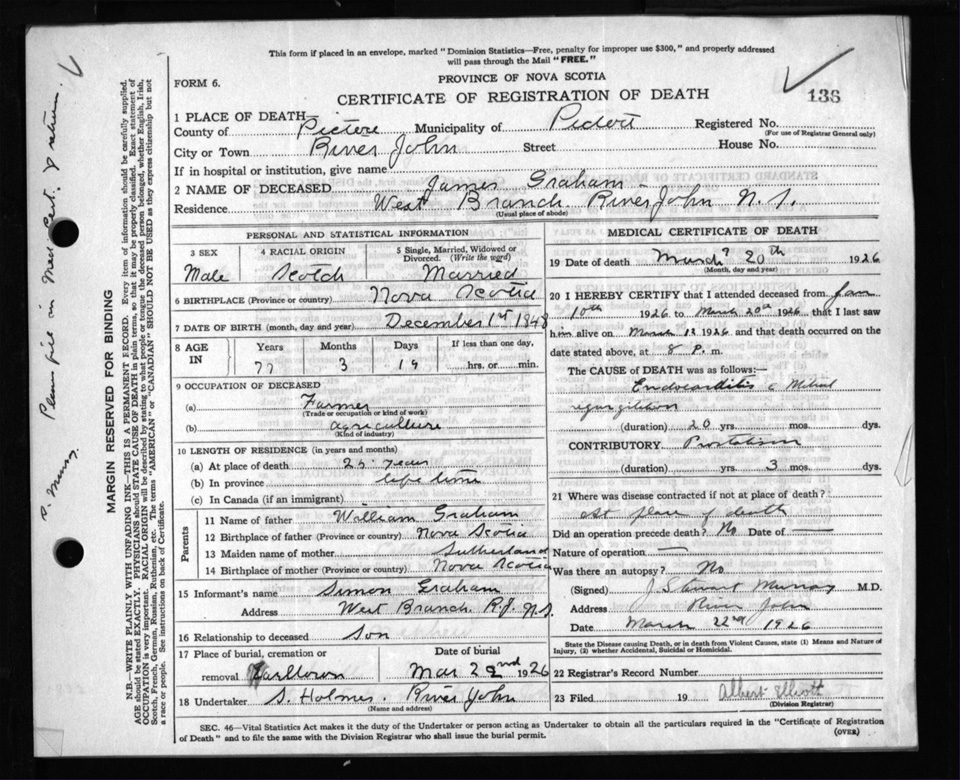 This form if placed in an envelope, marked "Dominion Statistics—Free, penalty for improper use $300," and properly addressed
will pass through the Mail "FREE."
FORM 6.
PROVINCE OF NOVA SCOTIA
CERTIFICATE OF REGISTRATION OF DEATH
138
1 PLACE OF DEATH
County of Pictou Municipality of Pictou Registered No.
(For use of Registrar General only)
City or Town River John Street House No.
If in hospital or institution, give name
2 NAME OF DECEASED James Graham
Residence West Branch River John N. S.
(Usual place of abode)
PERSONAL AND STATISTICAL INFORMATION
3 SEX 4 RACIAL ORIGIN 5 Single, Married, Widowed or Divorced. (Write the word)
Male Scotch Married
6 BIRTHPLACE (Province or country) Nova Scotia
7 DATE OF BIRTH (month, day and year) December 1st 1848
8 AGE IN Years Months Days If less than one day,
77 3 19 hrs. or min.
9 OCCUPATION OF DECEASED
(a) Farmer
(Trade or occupation or kind of work)
(b) agriculture
(Kind of industry)
10 LENGTH OF RESIDENCE (in years and months)
(a) At place of death 25 years
(b) In province life time
(c) In Canada (if an immigrant)
Parents
11 Name of father William Graham
12 Birthplace of father (Province or country) Nova Scotia
13 Maiden name of mother Sutherland
14 Birthplace of mother (Province or country) Nova Scotia
15 Informant's name Simon Graham
Address West Branch R.J. N.S.
16 Relationship to deceased Son
17 Place of burial, cremation or removal Date of burial
Earltown Mar 22nd 1926
18 Undertaker S. Holmes. River John
(Name and address)
MEDICAL CERTIFICATE OF DEATH
19 Date of death March 20th 1926
(Month, day and year)
20 I HEREBY CERTIFY that I attended deceased from Jan
10th 1926 to March 20th 1926 that I last saw
him alive on March 1926 and that death occurred on the
date stated above, at 8 P. m.
The CAUSE of DEATH was as follows:—
Endocarditis c Mitral
regurgitation
(duration) 20 yrs. mos. dys.
CONTRIBUTORY
(duration) yrs. 3 mos. dys.
21 Where was disease contracted if not at place of death?
At place of death
Did an operation precede death? No Date of —
Nature of operation —
Was there an autopsy? No
(Signed) J. Stewart Murray M.D.
Address River John
Date March 22nd 1926
State the Disease causing Death, or in death from Violent Causes, state (1) Means and Nature of
Injury, (2) whether Accidental, Suicidal or Homicidal.
22 Registrar's Record Number
23 Filed 19 Albert Elliott
(Division Registrar)
SEC. 46—Vital Statistics Act makes it the duty of the Undertaker or person acting as Undertaker to obtain all the particulars required in the "Certificate of Registration
of Death" and to file the same with the Division Registrar who shall issue the burial permit.
(OVER)
MARGIN RESERVED FOR BINDING
N.B.—WRITE PLAINLY WITH UNFADING INK—THIS IS A PERMANENT RECORD. Every item of information should be carefully supplied.
AGE should be stated EXACTLY. PHYSICIANS should STATE CAUSE OF DEATH in plain terms, so that it may be properly classified. Exact statement of
OCCUPATION is very important. RACIAL ORIGIN will be described by stating to what people or tongue the deceased person belonged, whether English, Irish,
Scotch, French, German, Russian, Ruthenian, etc. The terms "AMERICAN" or "CANADIAN" SHOULD NOT BE USED as they express citizenship but not
a race or people. See instructions on back of Certificate.
Please fill in Med Cert. & return.